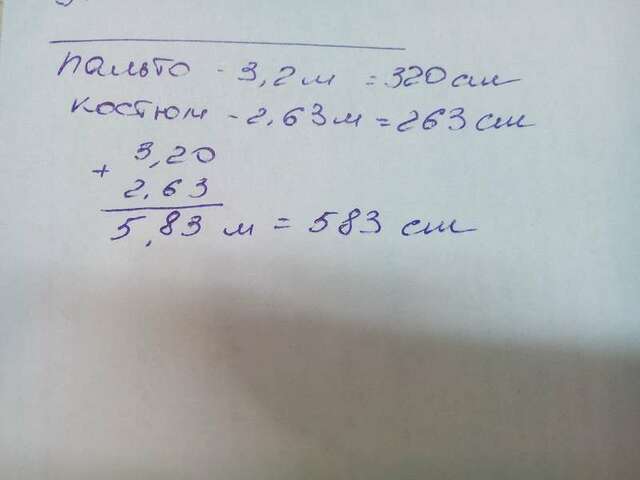 пальто - 3,2 м = 320 см
костюм - 2,63 м = 263 см
3,20
+
2,63
5,83 м = 583 см